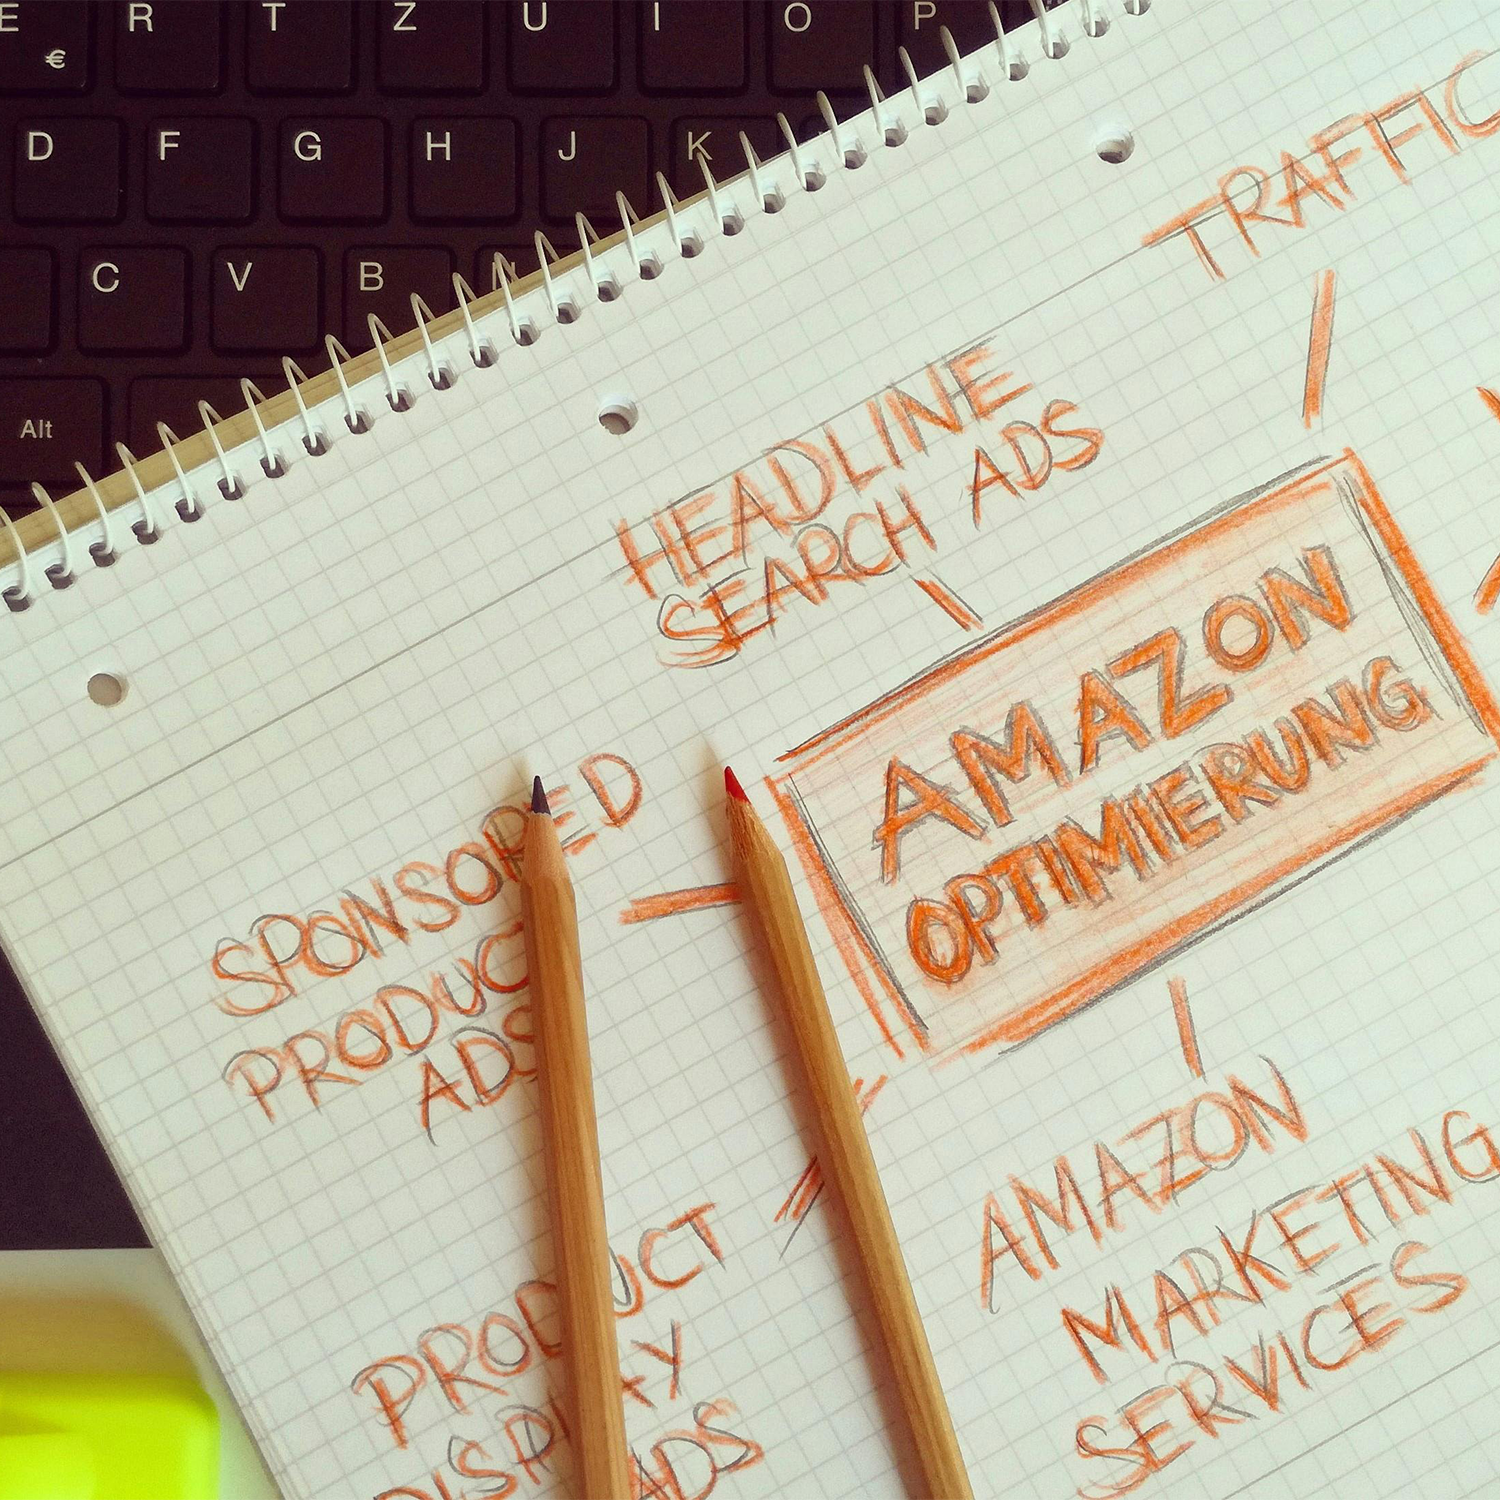 E R T Z U I O P
€
D F G H J K
C V B N
Alt
TRAFFIC
HEADLINE
SEARCH ADS
AMAZON
OPTIMIERUNG
SPONSORED
PRODUCT
ADS
AMAZON
MARKETING
SERVICES
PRODUCT
DISPLAY
ADS